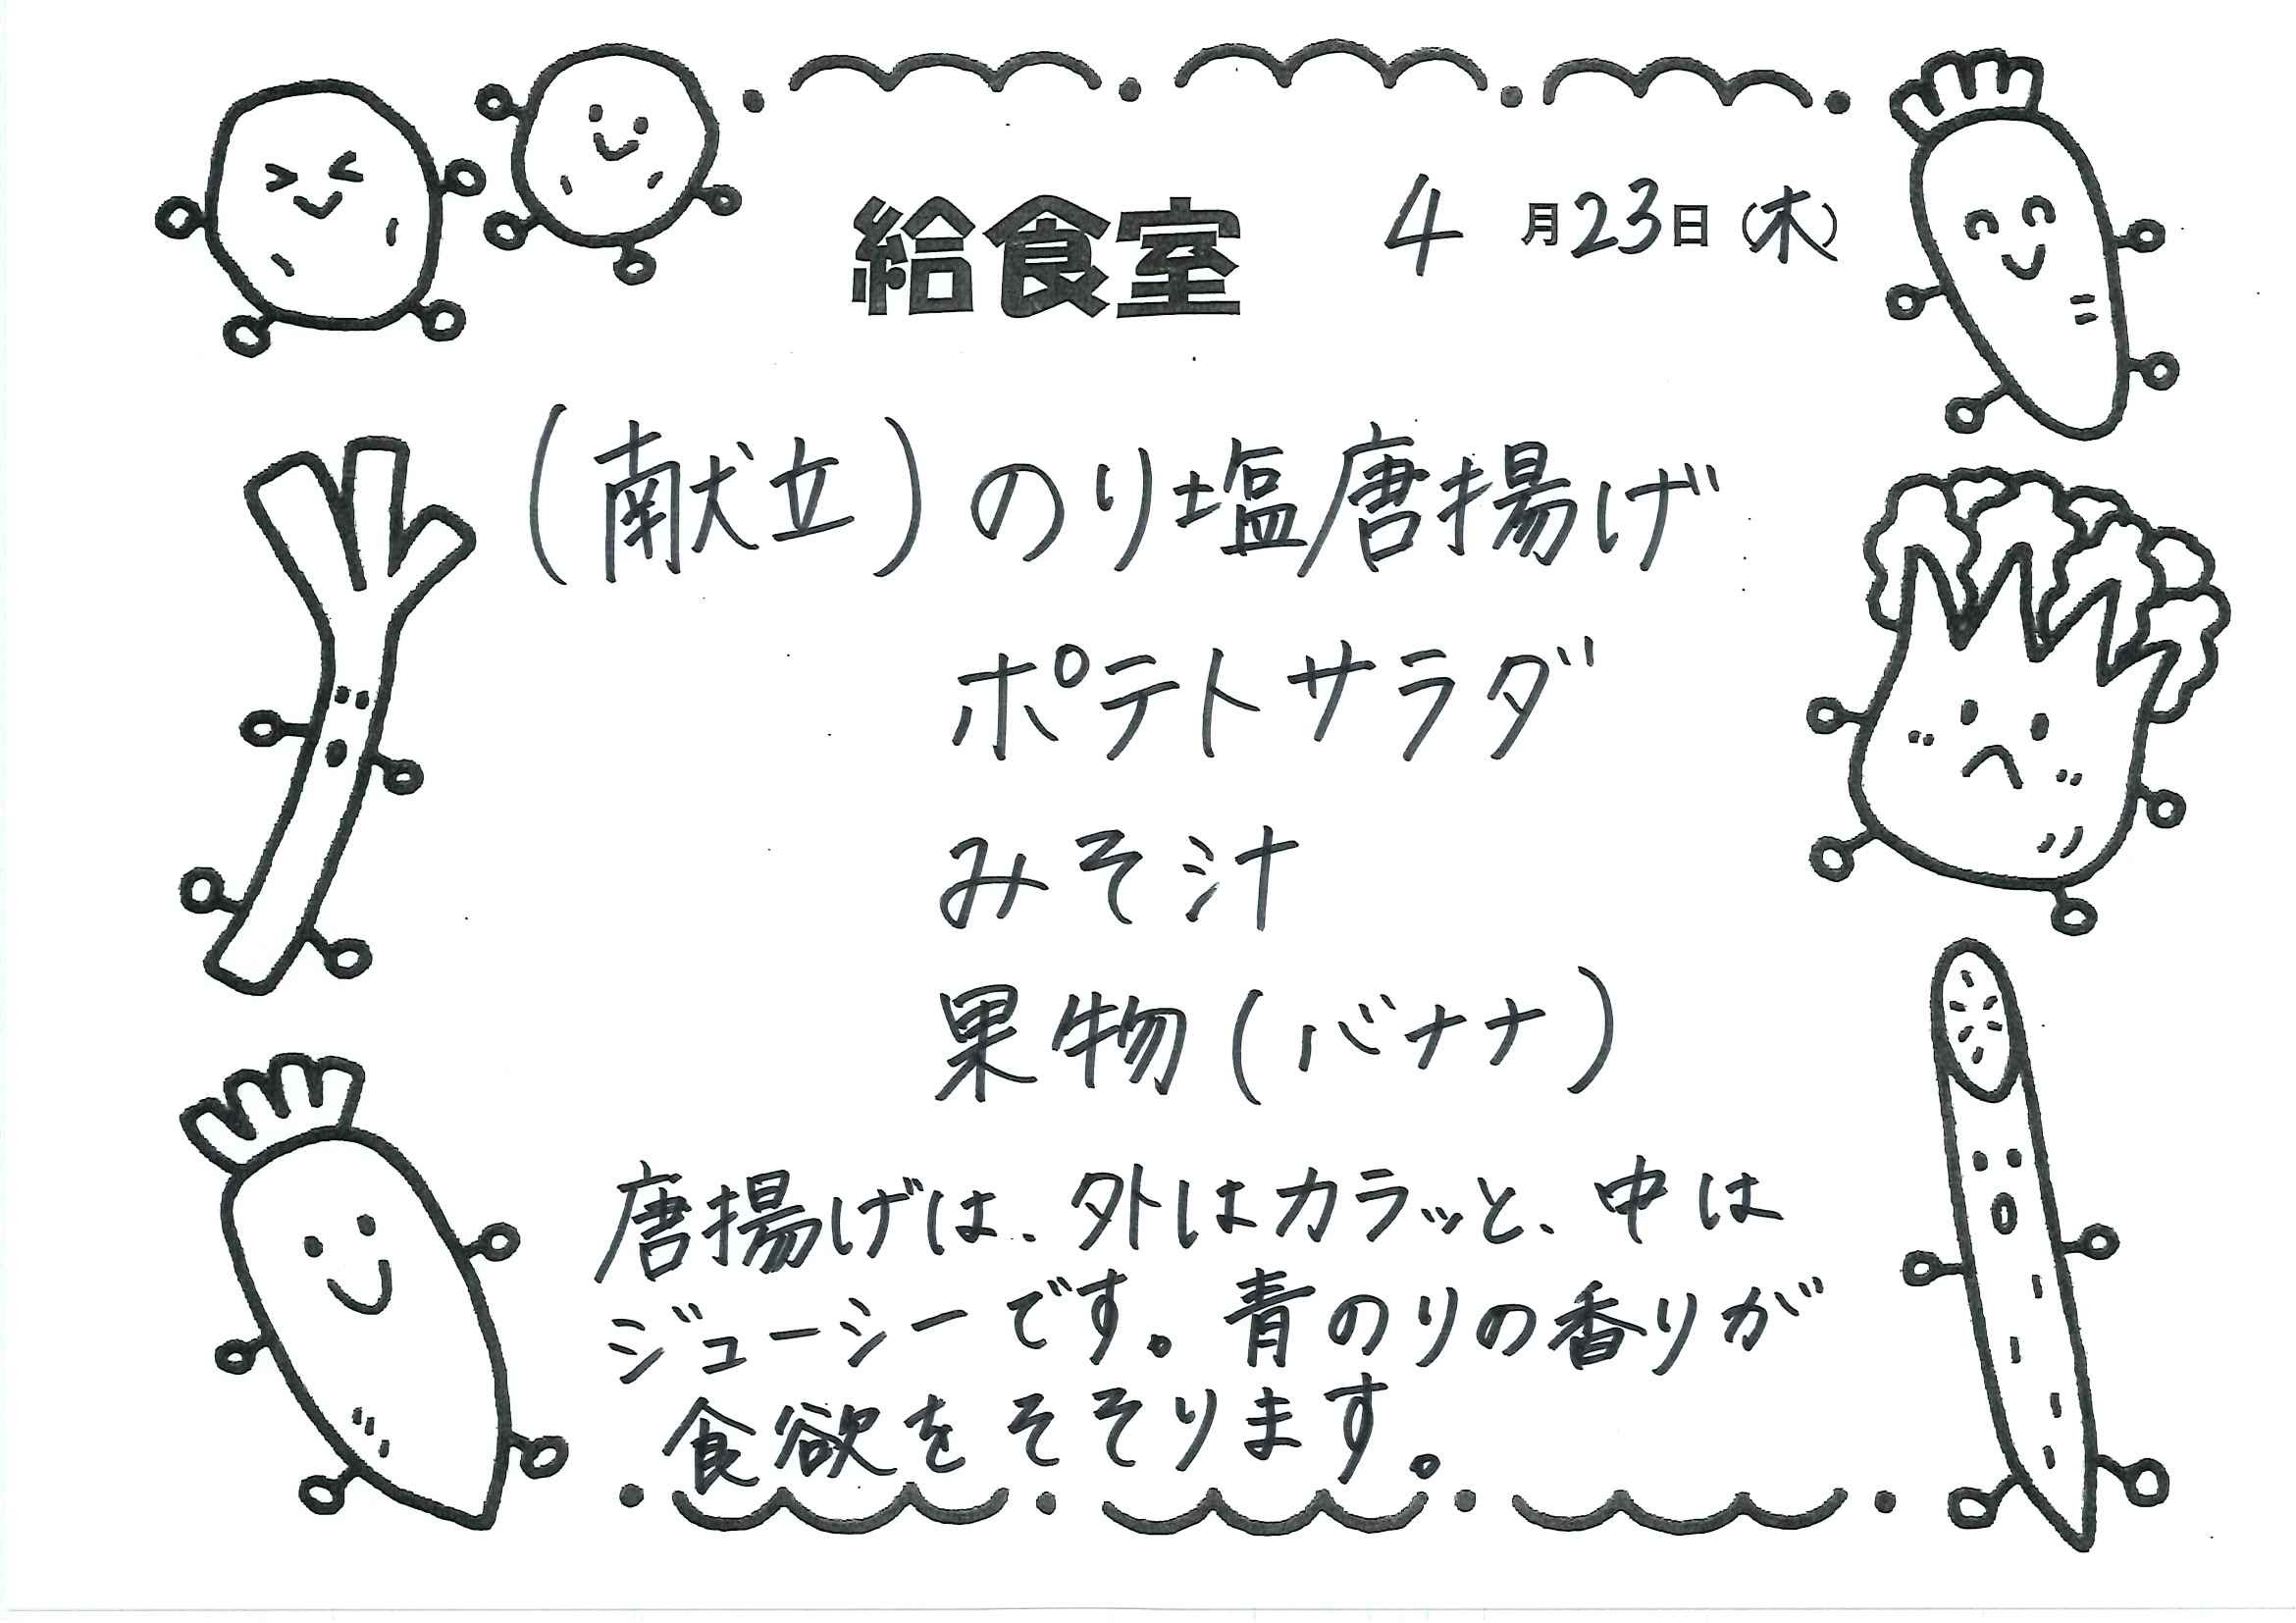 給食室 4月23日(木)
(献立)のり塩唐揚げ
ポテトサラダ
みそ汁
果物(バナナ)
唐揚げは、外はカラッと、中は
ジューシーです。青のりの香りが
食欲をそそります。